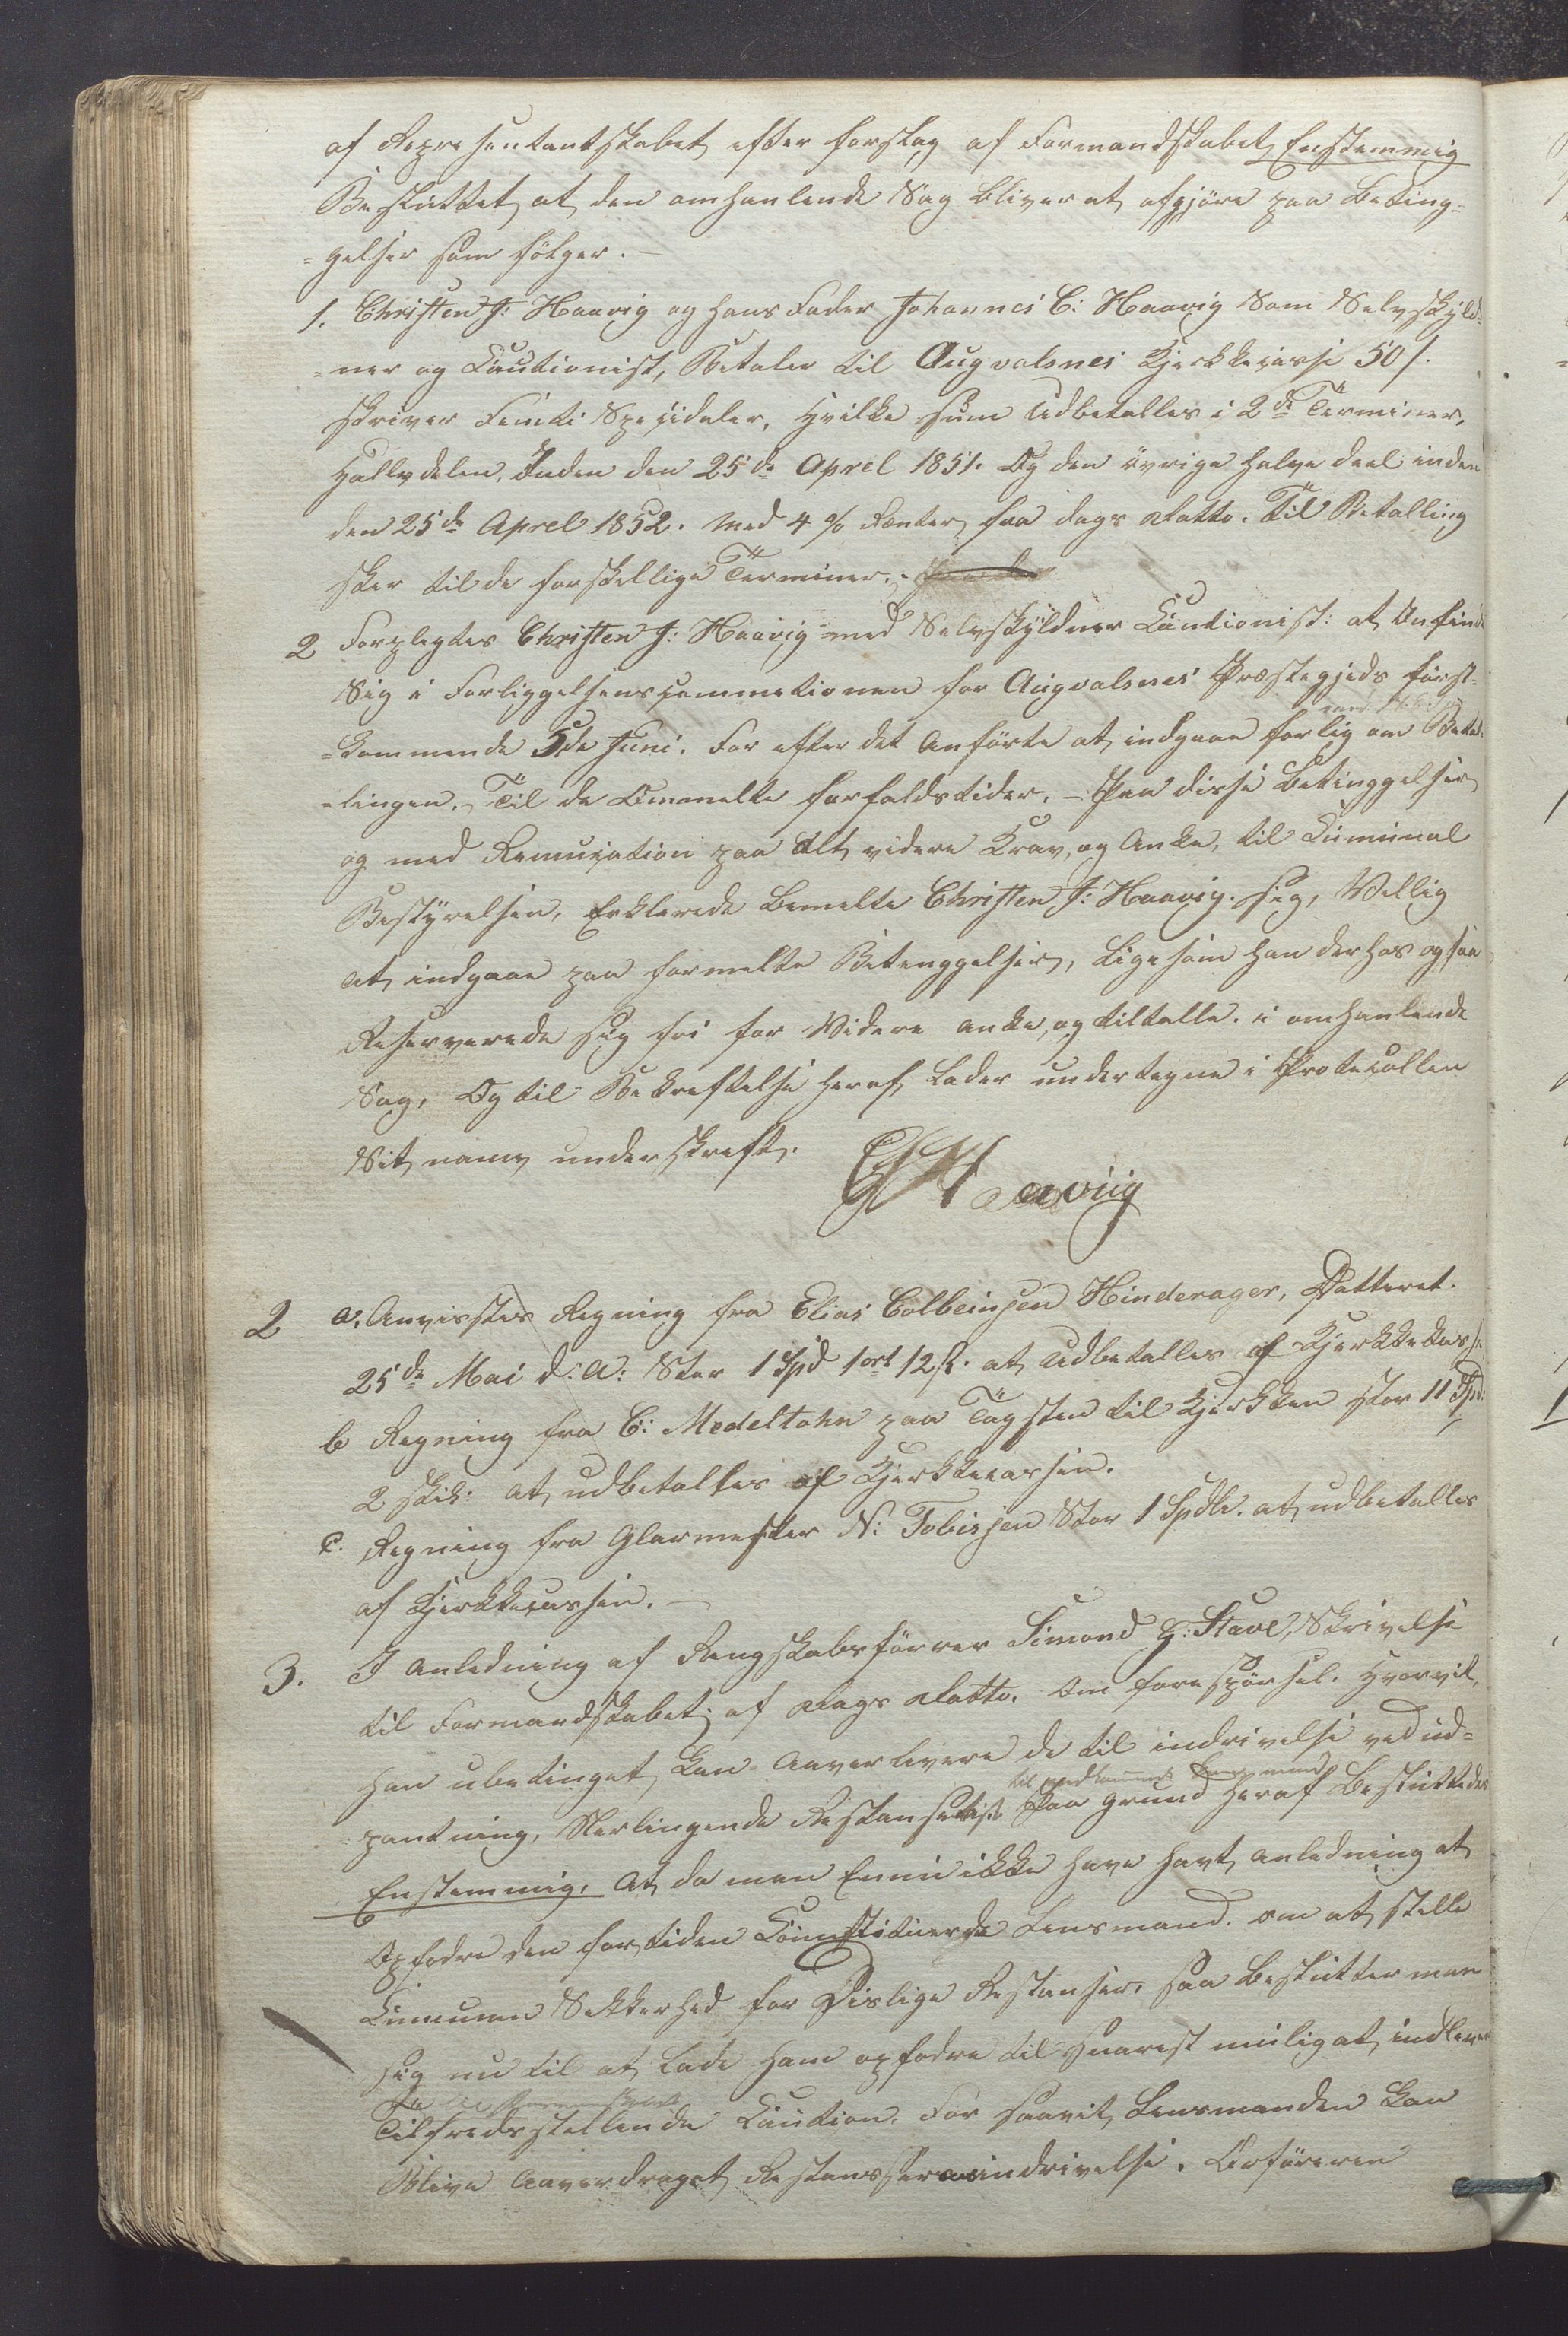 af Repræsentantskabet efter forslag af Formandskabet Enstemmig
Besluttet at den omhanlende Sag bliver at afgjöre paa Beting=
=gelser som fölger. —
1. Christen J: Haavig og hans Fader Johannes C: Haavig Som Selvskyld=
=ner og Cautionist, Betaler til Augvalsnes Kjerkkecasse 50 f.
skriver Femti Speciidaler, hvilke sum Udbetalles i 2de Terminer,
Hallvdelen, Inden den 25de Aprel 1851. Og den övrige halve deel inden
den 25de Aprel 1852. med 4 % Renter fra dags Datto. Til Betalling
sker til de forskellige Terminer.
2 Forplegtes Christen J: Haavig med Selvskyldner Cautionist: at Innfinde
Sig i Forliggelsenscommetionen for Augvalsnes Prestegjeds först=
=kommende 5de Juni. For efter det Anförte at indgaae forlig om Betal=
=lingen. Til de Ommelte forfaldstider. – Paa disse Betinggelser
og med Renunciation paa Alt videre Krav, og Anke, til Cummunal
Bestyrelsen, Erklerede bemelte Christen J: Haavig. sig, Vellig
at indgaae paa formelte Betenggelser, Ligesom han derhos ogsaa
Reserverede sig fri for Videre anke, og tiltalle. i omhanlende
Sag, Og til Bekreftelse heraf Lader undertegne i Protecollen
Sit navn underskreft.
C J Haaviig
2 a. Anvisstes Regning fra Elias Colbeinsen Hinderager, Datteret.
25de Mai d: A: Stor 1 Spd 1 ort 12 s. at Udbetalles af Kjerkkekass:
b Regning fra C: Medeltohn paa Tagsten til Kjerkken stor 11 Spd:
2 skil: at udbetalles af Kjerkkecassen.
c. Regning fra Glarmester N: Tobissen Stor 1 Spdlr. at udbetalles
af Kjerkkecassen. —
3. I Anledning af Rengskabsförrer Simond H: Stave, Skrivelse
til Formandskabet, af Dags Datto. Om forespörsel. Hvorvit,
han ubetinget, kan Aaverlevere de til indrivelse ved ud=
=pantning, Verlingende Restanseliste Paa Grund heraf Besluttedes
Enstemmig, At da man Ennu ikke have havt anledning at
Opfodre den for tiden Constituerde Lensmand. om at stelle
Cumunen Sekkerhed for Dislige Restanser, saa beslutter man
sig nu til at Lade ham opfodre til snarest muligat indlevere
Tilfredsstellende Caution. For saavit Lensmanden kan
Blive Aaverdraget Restanssernes indrivelse. Ordföreren